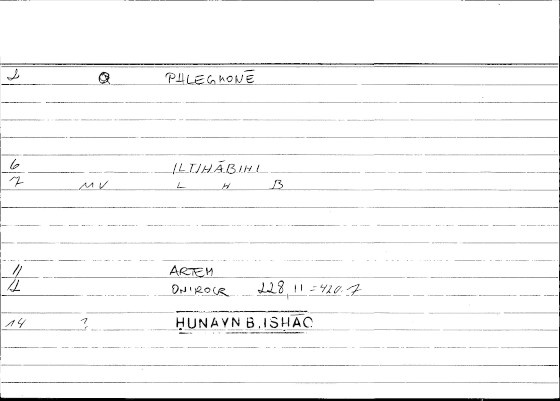 2 Q PHLEGMONĒ
6 ILTIHĀBIHI
7 MV L H B
11 ARTEM
12 ONIROCR 228,11 = 420.7
14 ? ḤUNAYN B. ISḤĀQ